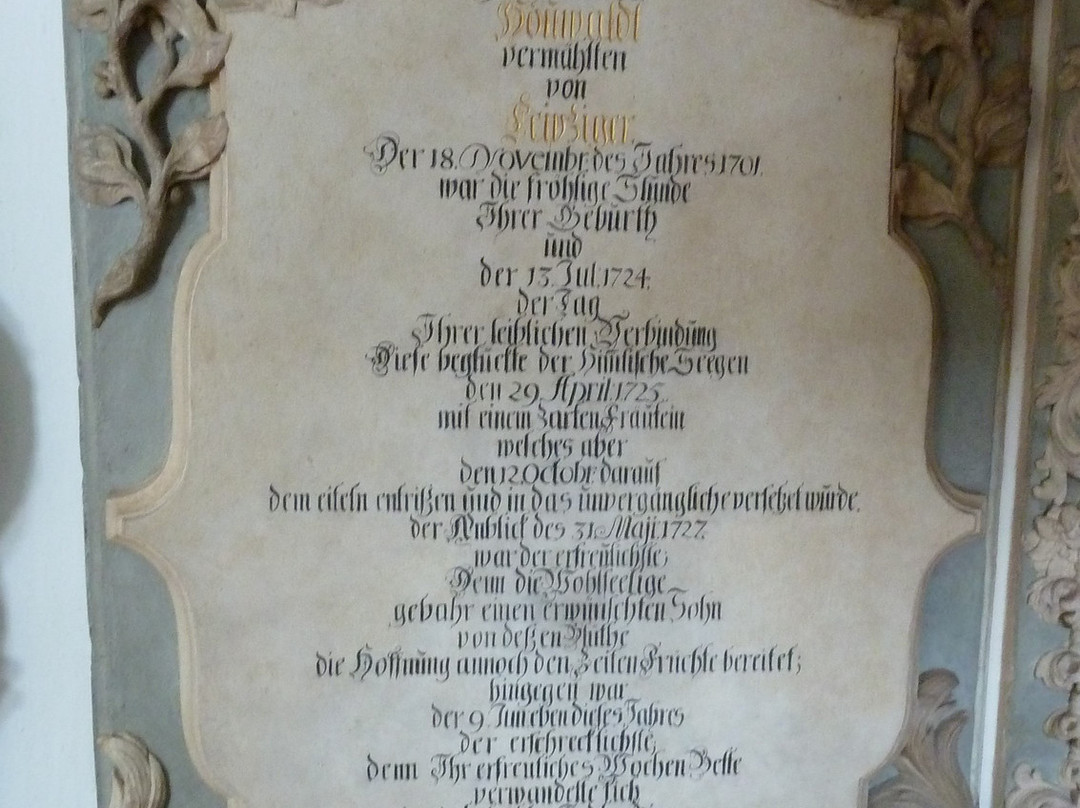 Hoüwaldt
vermählten
von
Leipziger.
Der 18. Novembr. des Jahres 1701.
war die fröhlige Stünde
Ihrer Gebürth
ünd
der 13. Jul. 1724.
der Tag
Ihrer leiblichen Verbindüng
Diese beglückte der Him̅lische Seegen
den 29. April. 1725.
mit einem zarten Fraülein
welches aber
den 12. Octobr. daraüf
dem eiteln entrißen ünd in das ünvergängliche versetzet würde.
der Anblick des 31. Maji. 1727.
war der erfreülichste;
Denn die Wohlseelige
gebahr einen erwünschten Sohn
von deßen Blüthe
die Hoffnüng annoch den Zeiten Früchte bereitet;
hingegen war
der 9. Jun. eben dieses Jahres
der erschrecklichste,
denn Ihr erfreüliches Wochen Bette
verwandelte sich